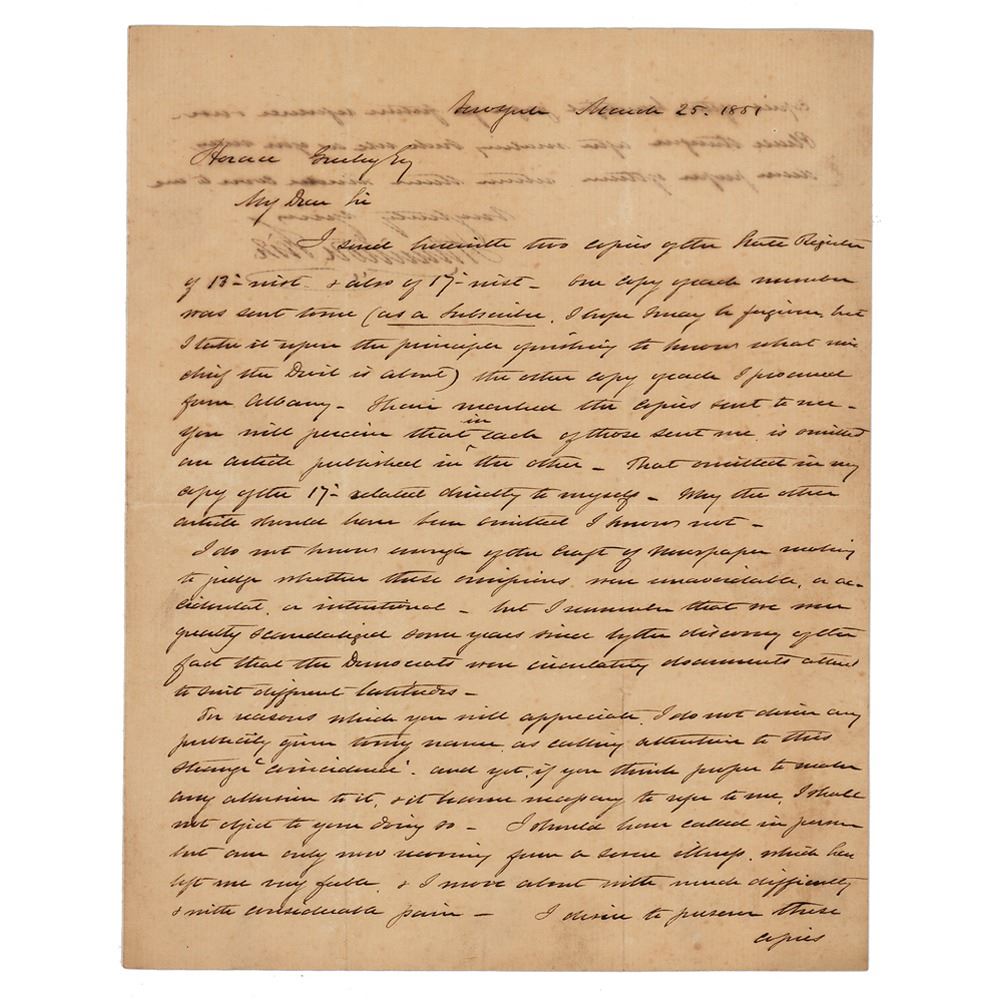 New York March 25. 1851
Horace Greeley Esq
My Dear Sir
I send herewith two copies of the State Register
of 13th inst. & also of 17th inst - One copy of each number
was sent to me (as a Subscriber, I hope I may be forgiven, but
I take it upon the principle of wishing to know what mis
chief the Devil is about) the other copy of each I procured
from Albany - I have marked the copies sent to me -
You will perceive that in each of those sent me is omitted
an article published in the other - That omitted in my
copy of the 17th related directly to myself - Why the other
article should have been omitted I know not -
I do not know enough of the Craft of Newspaper making
to judge whether these omissions were unavoidable, or ac-
cidental, or intentional - but I remember that we were
greatly scandalized some years since by the discovery of the
fact that the Democrats were circulating documents altered
to suit different latitudes -
For reasons which you will appreciate, I do not desire any
publicity given to my name, as calling attention to this
strange "coincidence". and yet, if you think proper to make
any allusion to it, & it became necessary to refer to me, I shall
not object to your doing so - I should have called in person
but am only now recovering from a severe illness, which has
left me very feeble, & I move about with much difficulty
& with considerable pain - I desire to preserve these
copies